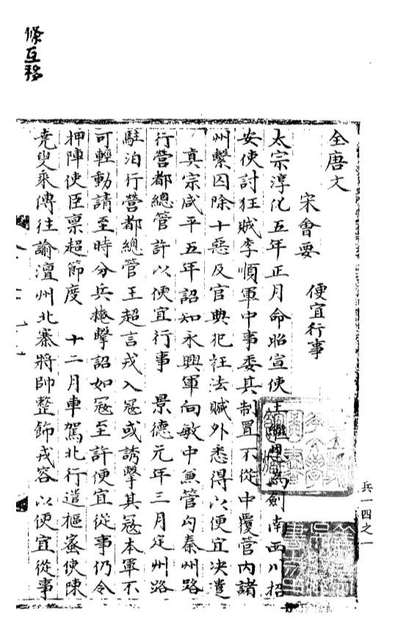 全唐文
宋會要
便宜行事
太宗淳化五年正月命昭宣使王繼恩為劍南西川招
安使討狂賊李順軍中事委其制置不從中覆管內諸
州繫囚除十惡及官典犯枉法贓外悉得以便宜決遣
真宗咸平五年詔知永興軍向敏中兼管勾秦州路
行營都總管許以便宜行事 景德元年三月定州路
駐泊行營都總管王超言戎入寇或誘擊其寇本軍不
可輕動請至時分兵掩擊詔如寇至許便宜從事仍令
押陣使臣稟超節度 十二月車駕北行遣樞密使陳
堯叟乘傳往諭澶州北寨將帥整飾戎容以便宜從事
條互移
兵一四之一